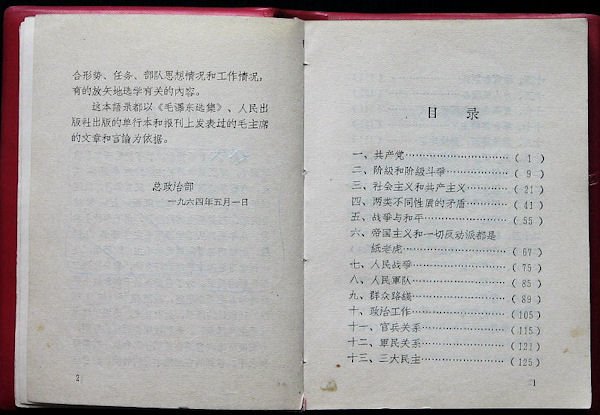 合形势、任务、部队思想情况和工作情况，
有的放矢地选学有关的內容。
这本語录都以《毛澤东选集》、人民出
版社出版的单行本和报刊上发表过的毛主席
的文章和言論为依据。
总政治部
一九六四年五月一日
2
目 录
一、共产党…………………………( 1 )
二、阶級和阶級斗爭…………………( 9 )
三、社会主义和共产主义……………( 21 )
四、两类不同性质的矛盾……………( 41 )
五、战爭与和平………………………( 55 )
六、帝国主义和一切反动派都是
紙老虎……………………………( 67 )
七、人民战爭…………………………( 75 )
八、人民軍队…………………………( 85 )
九、群众路綫…………………………( 89 )
十、政治工作…………………………(105)
十一、官兵关系………………………(115)
十二、軍民关系………………………(121)
十三、三大民主………………………(125)
1